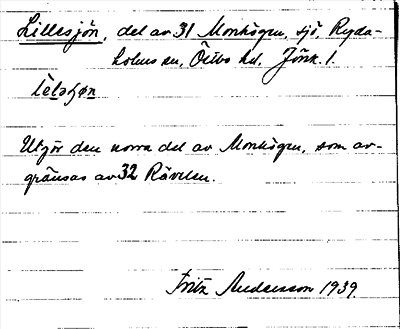 Lillesjön, del av 31 Morhögen, sjö, Ryda-
holms sn, Östbo hd. Jönk. l.
Utgör den norra del av Morhögen, som av-
gränsas av 32 Rävelen.
Fritz Andersson 1939.